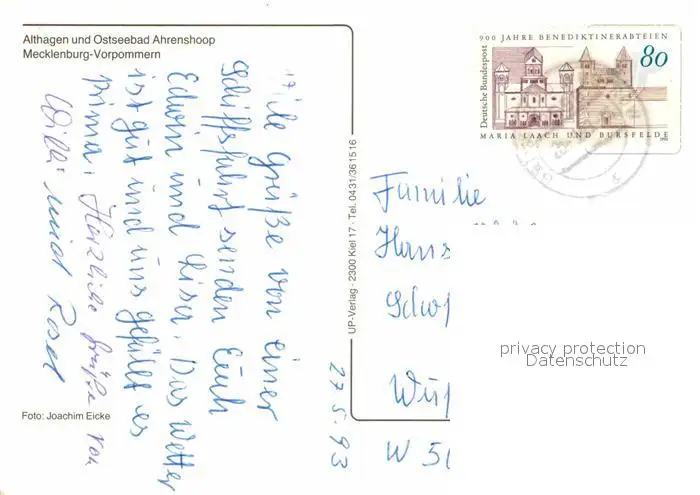 Althagen und Ostseebad Ahrenshoop
Mecklenburg-Vorpommern
Viele Grüße von einer
Schiffsfahrt senden Euch
Edwin und Lisa. Das Wetter
ist gut und uns gefällt es
prima. Herzliche Grüße von
Willi und Rosel
27.5.93
Foto: Joachim Eicke
UP-Verlag · 2300 Kiel 17 · Tel. 0431/361516
900 JAHRE BENEDIKTINERABTEIEN
Deutsche Bundespost
80
MARIA LAACH UND BURSFELDE
Familie
Hans
Wup
W 56
privacy protection
Datenschutz